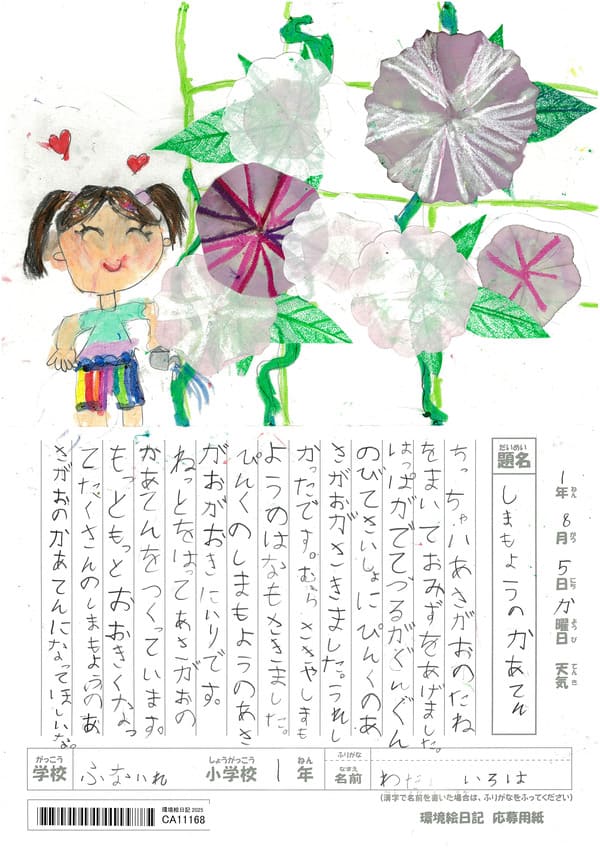 1年 8月 5日 か曜日 天気
ねん がつ にち ようび てんき
だいめい
題名
しまもようの かあてん
ちっちゃいあさがおのたね
をまいておみずをあげました。
はっぱがでてつるがぐんぐん
のびてさいしょにぴんくのあ
さがおがさきました。うれし
かったです。むらさきやしまも
ようのはなもさきました。
ぴんくのしまもようのあさ
がおがおきにいりです。
ねっとをはってあさがおの
かあてんをつくっています。
もっともっとおおきくなっ
てたくさんのしまもようのあ
さがおのかあてんになってほしいな。
がっこう しょうがっこう ねん ふりがな
学校 ふないれ 小学校 1年
なまえ
名前 いろは
(漢字で名前を書いた場合は、ふりがなをふってください)
環境絵日記 2025
CA11168
環境絵日記 応募用紙